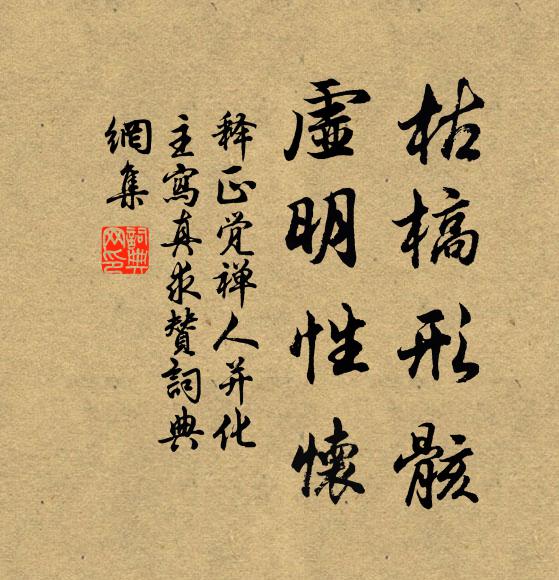 枯槁形骸
虛明性懷
释正觉禅人并化
主寫真求贊詞典
網集
詞典網印